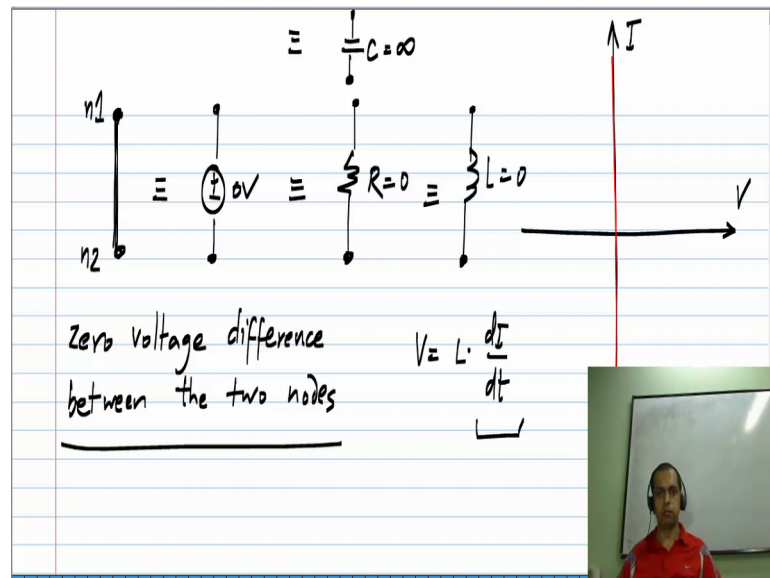 ≡ C=∞
I
n1
≡ ± 0V ≡ R=0 ≡ L=0
V
n2
zero voltage difference
between the two nodes
V= L· dI
dt